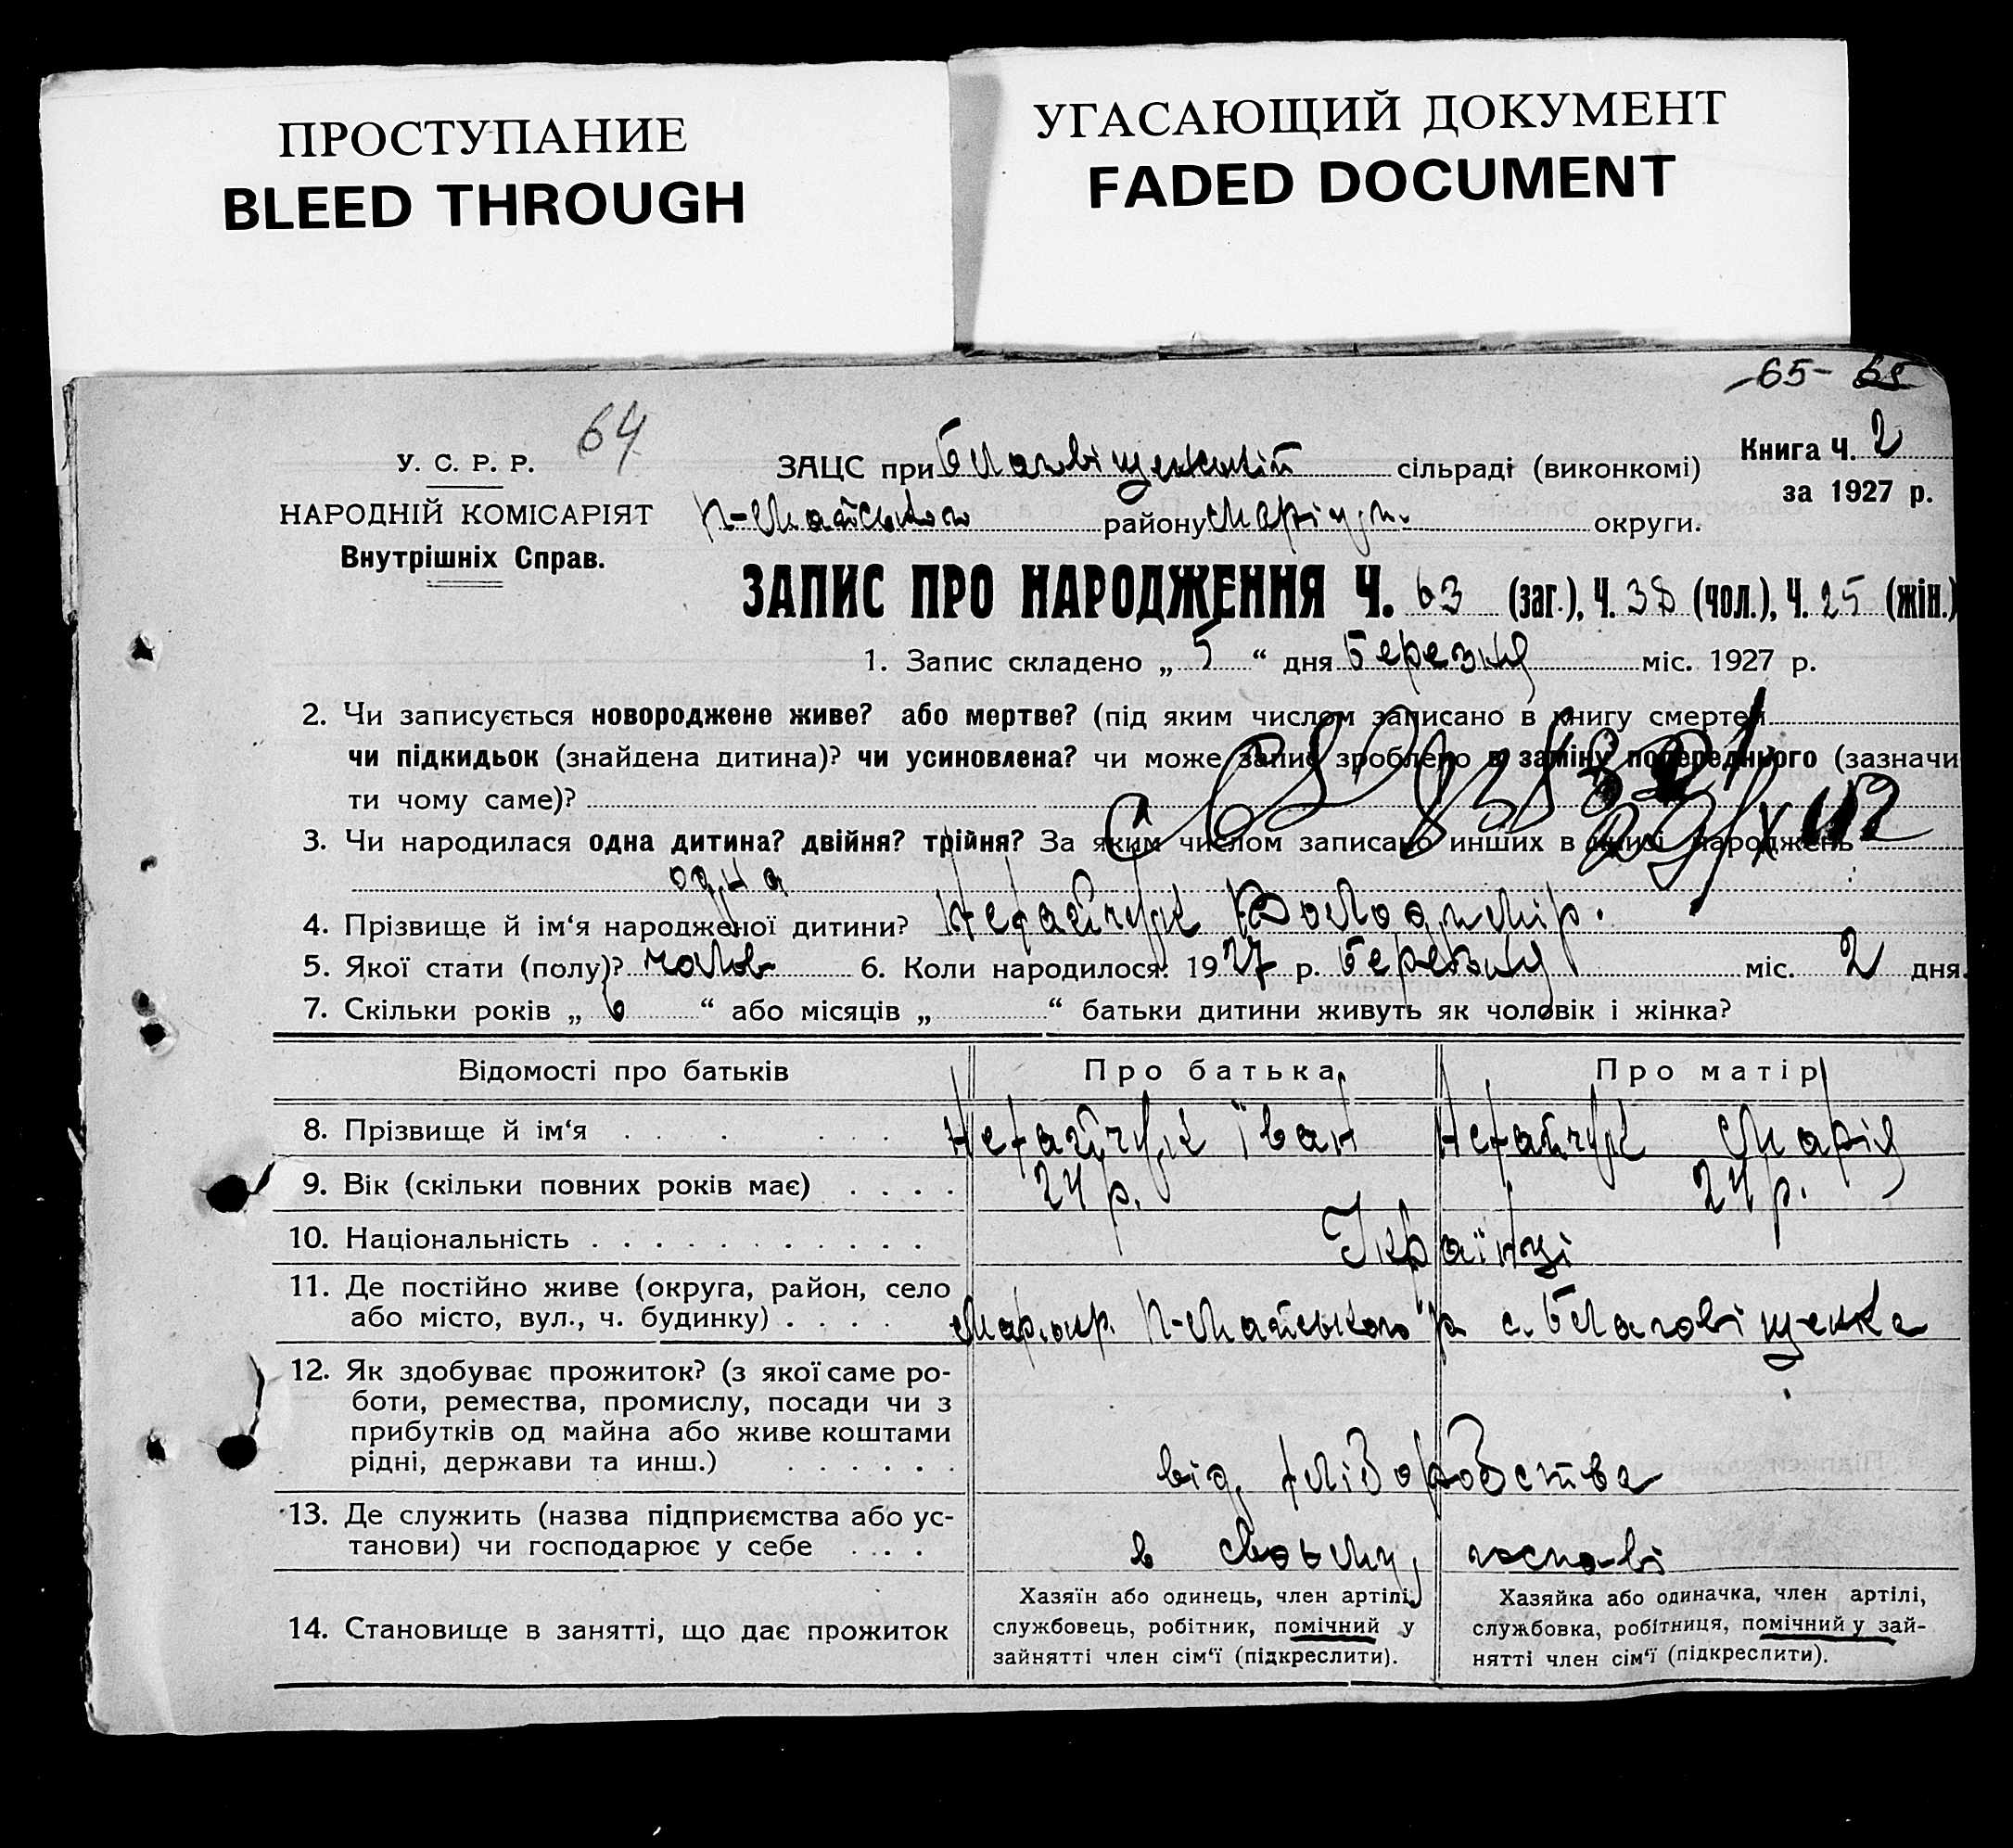 ПРОСТУПАНИЕ
BLEED THROUGH
УГАСАЮЩИЙ ДОКУМЕНТ
FADED DOCUMENT
-65-
64
У. С. Р. Р.
НАРОДНІЙ КОМІСАРІЯТ
Внутрішніх Справ.
Книга Ч. 2
за 1927 р.
ЗАЦС при Благовіщенській сільраді (виконкомі)
П-Майського району Маріуп. округи.
ЗАПИС ПРО НАРОДЖЕННЯ Ч. 63 (заг.), Ч. 38 (чол.), Ч. 25 (жін.)
1. Запис складено „ 5 “ дня Березня міс. 1927 р.
2. Чи записується новороджене живе? або мертве? (під яким числом записано в книгу смертей
чи підкидьок (знайдена дитина)? чи усиновлена? чи може запис зроблено в заміну попереднього (зазначи
ти чому саме)?
3. Чи народилася одна дитина? двійня? трійня? За яким числом записано инших в книзі народжень
одна
4. Прізвище й ім‘я народженої дитини? Нехайчук Володимір.
5. Якої стати (полу)? чолов 6. Коли народилося: 1927 р. Березня міс. 2 дня.
7. Скільки років „ 6 “ або місяців „ “ батьки дитини живуть як чоловік і жінка?
Відомості про батьків Про батька Про матір
8. Прізвище й ім‘я Нехайчук Іван Нехайчук Марія
9. Вік (скільки повних років має) 24 р. 24 р.
10. Національність Українці
11. Де постійно живе (округа, район, село
або місто, вул., ч. будинку) Мар. окр. П-Майського р с. Благовіщенка
12. Як здобуває прожиток? (з якої саме ро-
боти, ремества, промислу, посади чи з
прибутків од майна або живе коштами
рідні, держави та инш.) від хліборобства
13. Де служить (назва підприємства або ус-
танови) чи господарює у себе в своьму госп-ві
14. Становище в занятті, що дає прожиток
Хазяїн або одинець, член артілі,
службовець, робітник, помічний у
зайнятті член сім‘ї (підкреслити).
Хазяйка або одиначка, член артілі,
службовка, робітниця, помічний у зай-
нятті член сім‘ї (підкреслити).